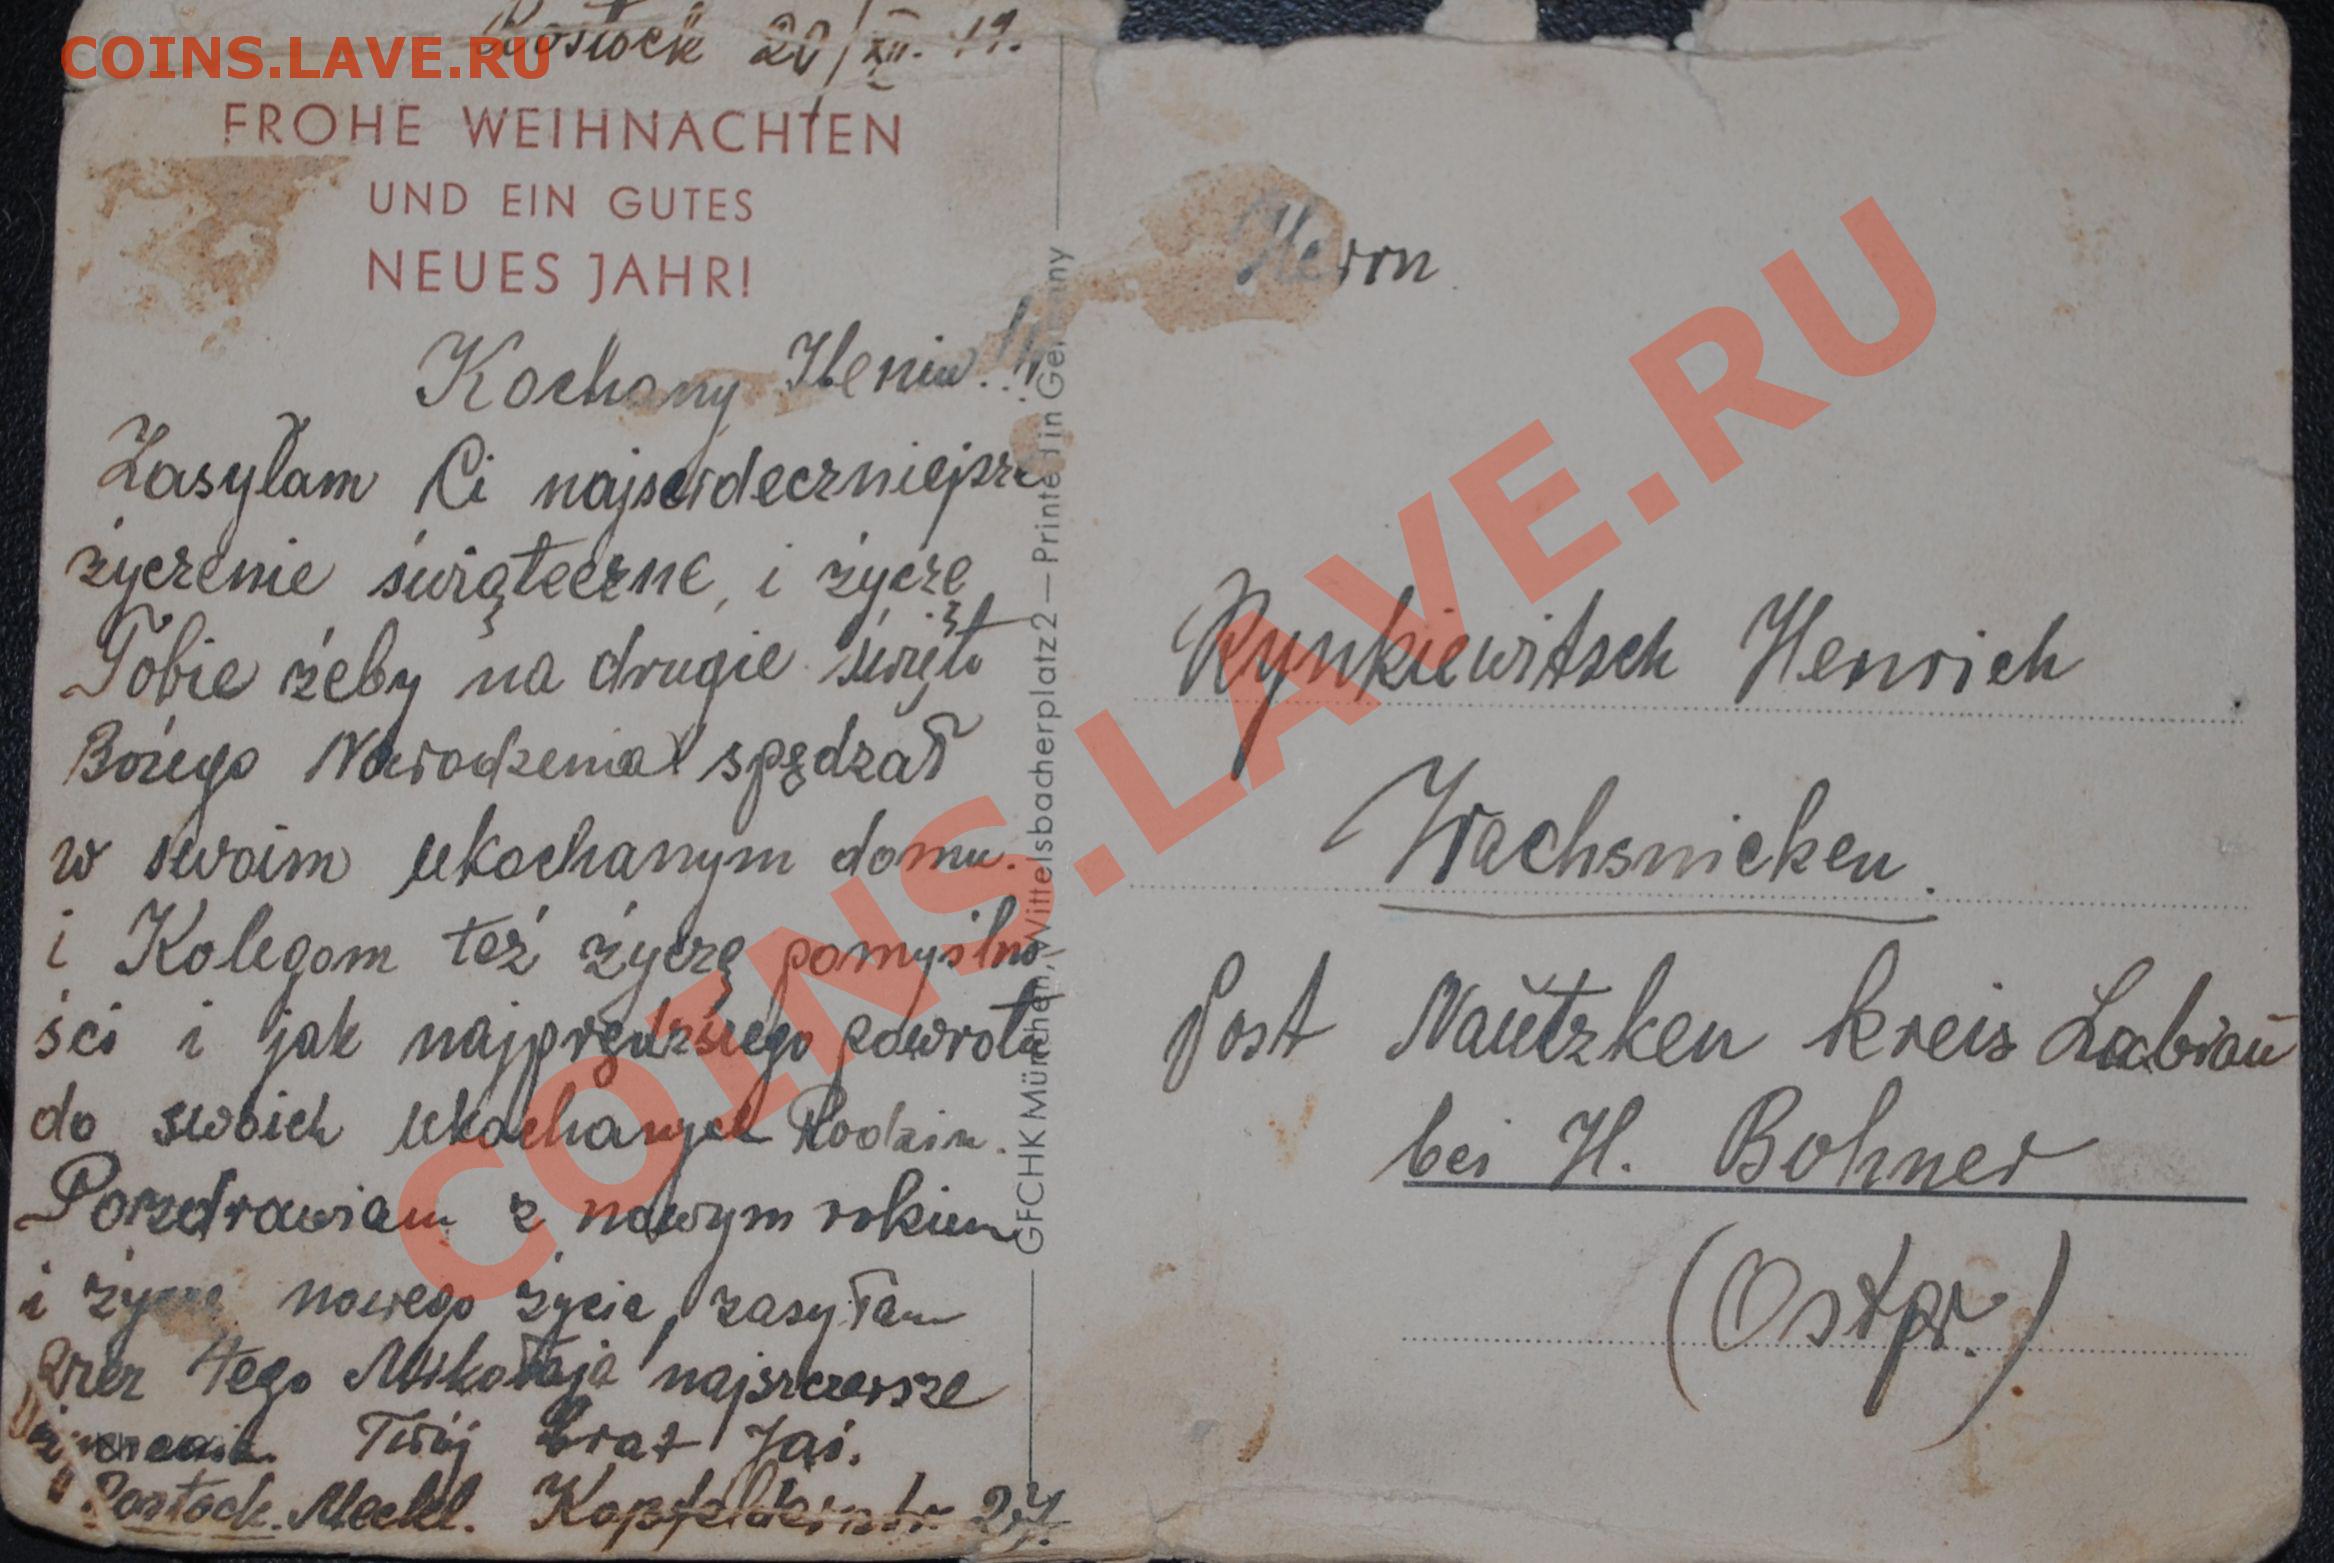 Rostock 20/XII.
FROHE WEIHNACHTEN
UND EIN GUTES
NEUES JAHR!
Kochany Heniu!!
Zasyłam Ci najserdeczniejsze
życzenie świąteczne, i życzę
Tobie żeby na drugie święta
Bożego Narodzenia spędzał
w swoim ukochanym domu.
i Kolegom też życzę pomyślno-
ści i jak najprędszego powrotu
do swoich ukochanych Rodzin.
Pozdrawiam z nowym rokiem
i życzę nowego życia, zasyłam
przez tego Mikołaja najszczersze
Twój brat Jaś.
Rostock. Meckl.
GFCHK München, Wittelsbacherplatz 2 — Printed in Germany
Herrn
Rynkiewitsch Henrich
Wachsnicken.
Post Nautzken Kreis Labiau
bei H. Bohner
(Ostpr.)
COINS.LAVE.RU
COINS.LAVE.RU